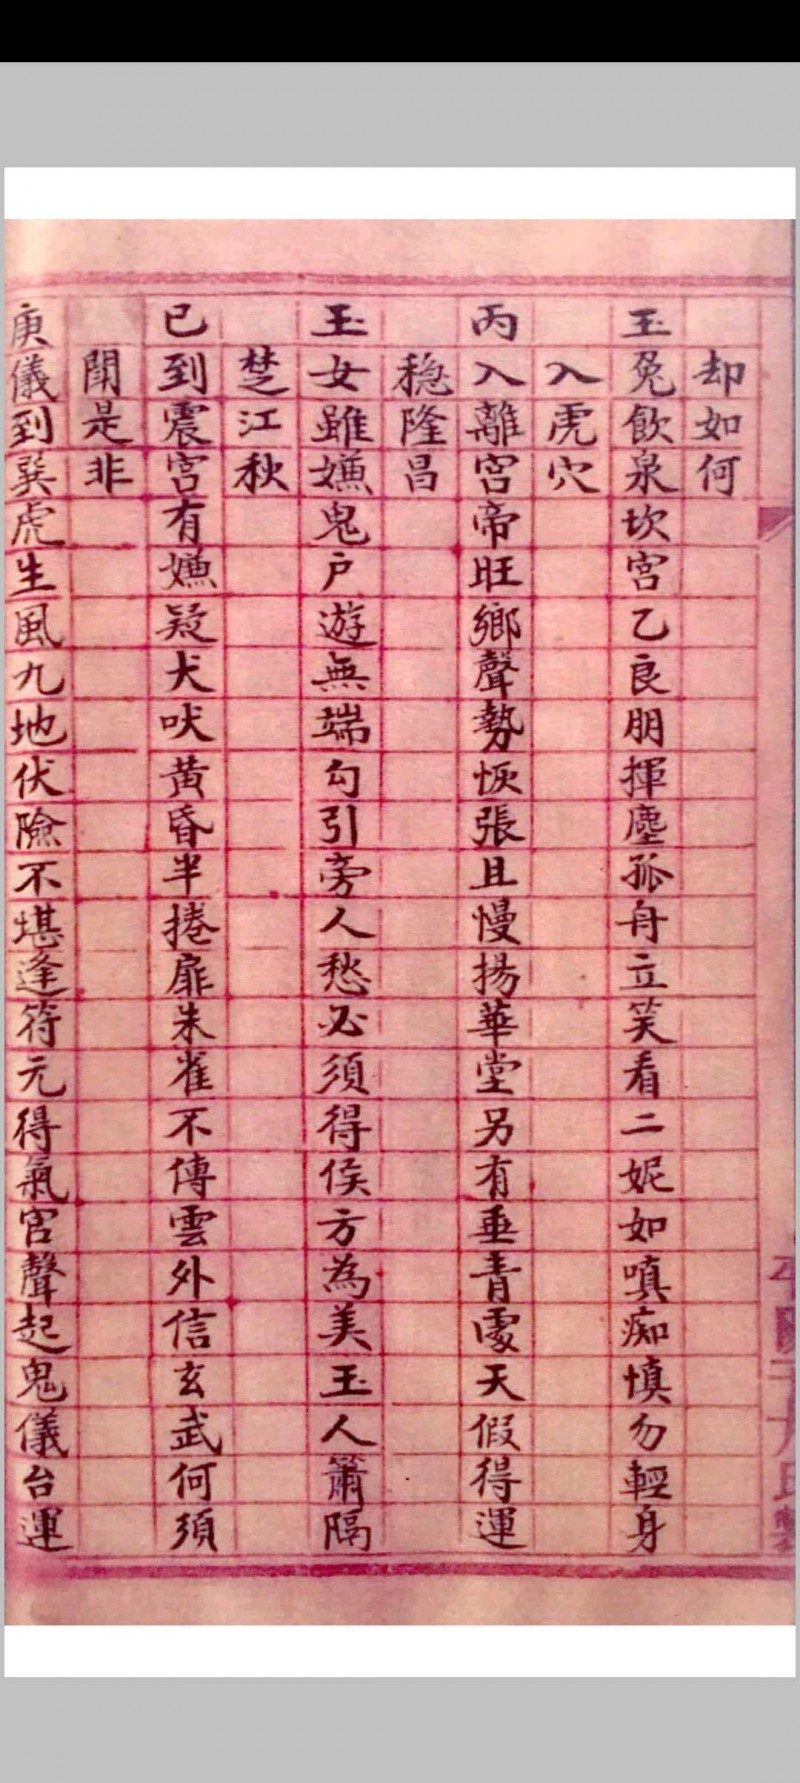 却如何
玉兔飲泉坎宮乙良朋揮塵孤舟立笑看二妮如嗔痴慎勿輕身
入虎穴
丙入離宮帝旺鄉聲勢恢張且慢揚華堂另有垂青處天假得運
稳隆昌
玉女雖嫌鬼戶遊無端勾引旁人愁必須得侯方為美玉人簫隔
楚江秋
已到震宮有嫌疑犬吠黄昏半捲扉朱雀不傳雲外信玄武何須
鬧是非
庚儀到巽虎生風九地伏險不堪逢符元得氣宮聲起鬼儀台運